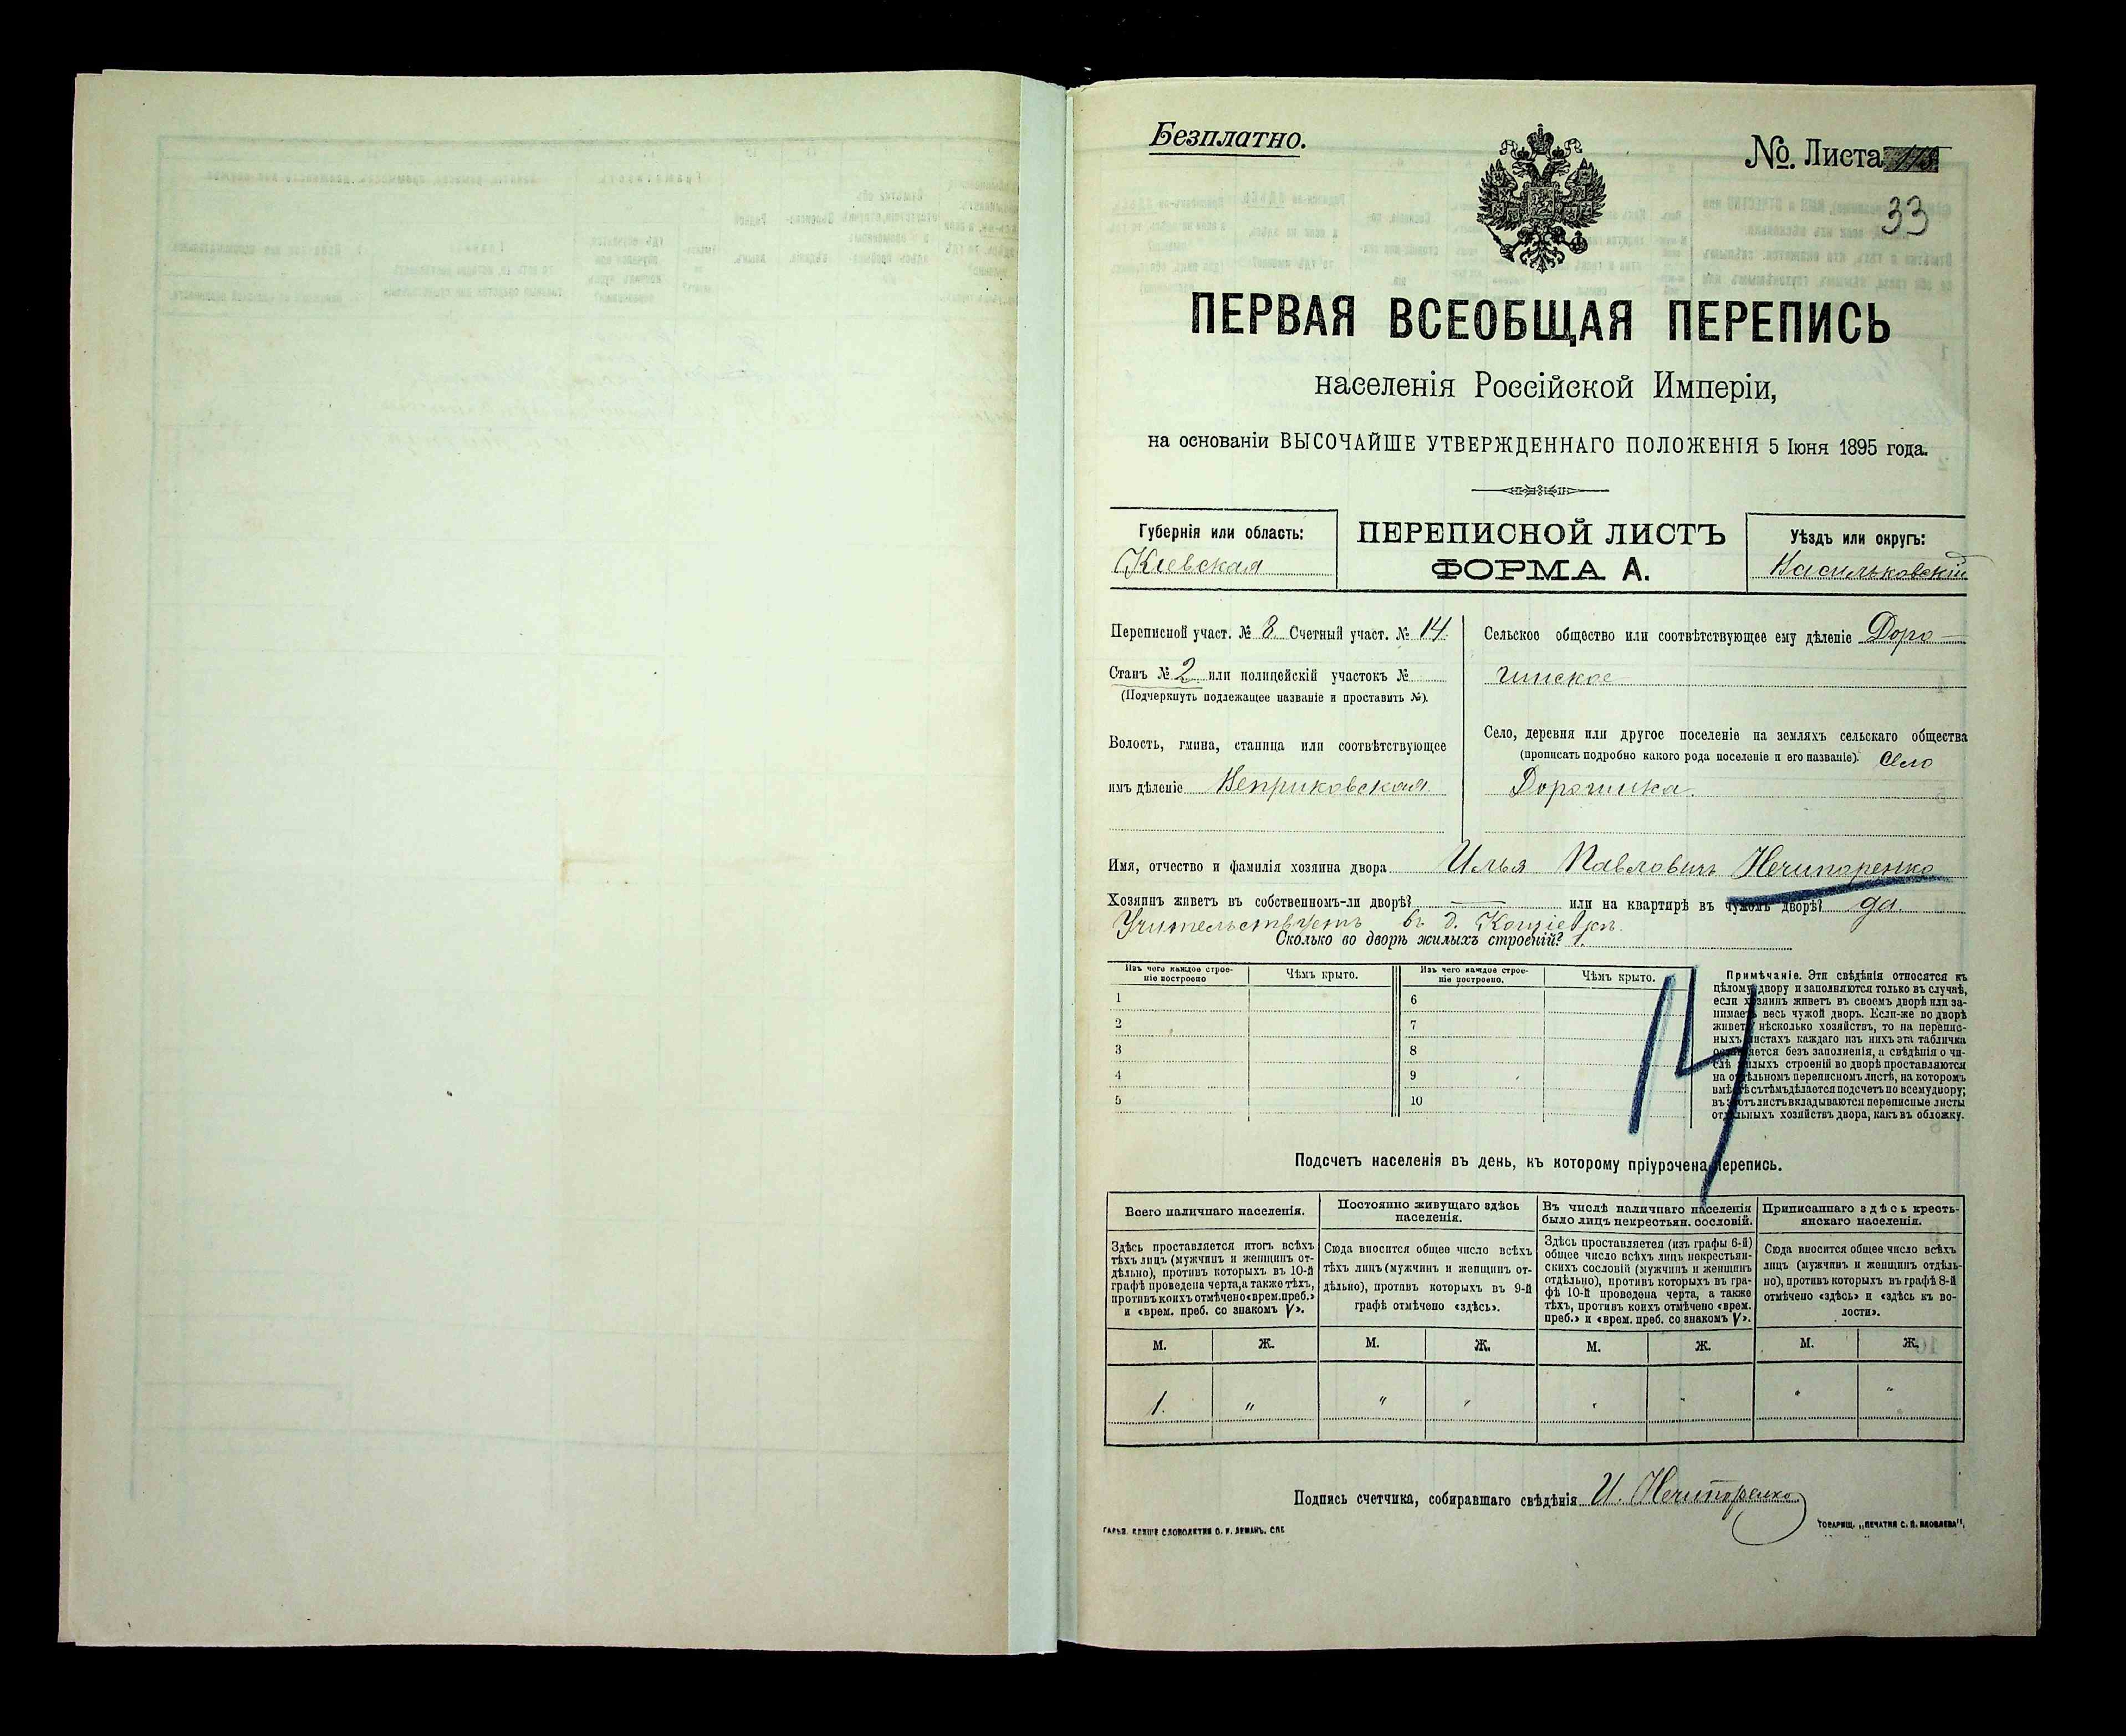 Безплатно.
№. Листа
33
ПЕРВАЯ ВСЕОБЩАЯ ПЕРЕПИСЬ
населенія Россійской Имперіи,
на основаніи ВЫСОЧАЙШЕ УТВЕРЖДЕННАГО ПОЛОЖЕНІЯ 5 Іюня 1895 года.
Губернія или область:
Кіевская
ПЕРЕПИСНОЙ ЛИСТЪ
ФОРМА А.
Уѣздъ или округъ:
Васильковскій
Переписной участ. № 8 Счетный участ. № 14.
Станъ № 2 или полицейскій участокъ №
(Подчеркнуть подлежащее названіе и проставить №).
Волость, гмина, станица или соотвѣтствующее
имъ дѣленіе Веприковская.
Сельское общество или соотвѣтствующее ему дѣленіе Доро-
гинское
Село, деревня или другое поселеніе на земляхъ сельскаго общества
(прописать подробно какого рода поселеніе и его названіе). Село
Дорогинка.
Имя, отчество и фамилія хозяина двора Илья Павловичъ Нечипоренко
Хозяинъ живетъ въ собственномъ-ли дворѣ? — или на квартирѣ въ чужомъ дворѣ? да.
Учительствуетъ въ д.
Сколько во дворѣ жилыхъ строеній? 1.
Изъ чего каждое строе-
ніе построено
Чѣмъ крыто.
Изъ чего каждое строе-
ніе построено.
Чѣмъ крыто.
1
2
3
4
5
6
7
8
9
10
14
Примѣчаніе. Эти свѣдѣнія относятся къ
цѣлому двору и заполняются только въ случаѣ,
если хозяинъ живетъ въ своемъ дворѣ или за-
нимаетъ весь чужой дворъ. Если-же во дворѣ
живетъ нѣсколько хозяйствъ, то на перепис-
ныхъ листахъ каждаго изъ нихъ эта табличка
оставляется безъ заполненія, а свѣдѣнія о чи-
слѣ жилыхъ строеній во дворѣ проставляются
на отдѣльномъ переписномъ листѣ, на которомъ
вмѣстѣ съ тѣмъ дѣлается подсчетъ по всему двору;
въ этотъ листъ вкладываются переписные листы
отдѣльныхъ хозяйствъ двора, какъ въ обложку.
Подсчетъ населенія въ день, къ которому пріурочена перепись.
Всего наличнаго населенія.
Здѣсь проставляется итогъ всѣхъ
тѣхъ лицъ (мужчинъ и женщинъ от-
дѣльно), противъ которыхъ въ 10-й
графѣ проведена черта, а также тѣхъ,
противъ коихъ отмѣчено «врем. преб.»
и «врем. преб. со знакомъ V».
Постоянно живущаго здѣсь
населенія.
Сюда вносится общее число всѣхъ
тѣхъ лицъ (мужчинъ и женщинъ от-
дѣльно), противъ которыхъ въ 9-й
графѣ отмѣчено «здѣсь».
Въ числѣ наличнаго населенія
было лицъ некрестьян. сословій.
Здѣсь проставляется (изъ графы 6-й)
общее число всѣхъ лицъ некрестьян-
скихъ сословій (мужчинъ и женщинъ
отдѣльно), противъ которыхъ въ гра-
фѣ 10-й проведена черта, а также
тѣхъ, противъ коихъ отмѣчено «врем.
преб.» и «врем. преб. со знакомъ V».
Приписаннаго здѣсь кресть-
янскаго населенія.
Сюда вносится общее число всѣхъ
лицъ (мужчинъ и женщинъ отдѣль-
но), противъ которыхъ въ графѣ 8-й
отмѣчено «здѣсь» и «здѣсь къ во-
лости».
М. Ж. М. Ж. М. Ж. М. Ж.
1. " " " " " " "
Подпись счетчика, собиравшаго свѣдѣнія И. Нечипоренко
ГАРЬЯ. КЛИШЕ СЛОВОЛИТНИ О. И. ЛЕМАНЪ. СПБ.
ТОВАРИЩ. „ПЕЧАТНЯ С. П. ЯКОВЛЕВА".